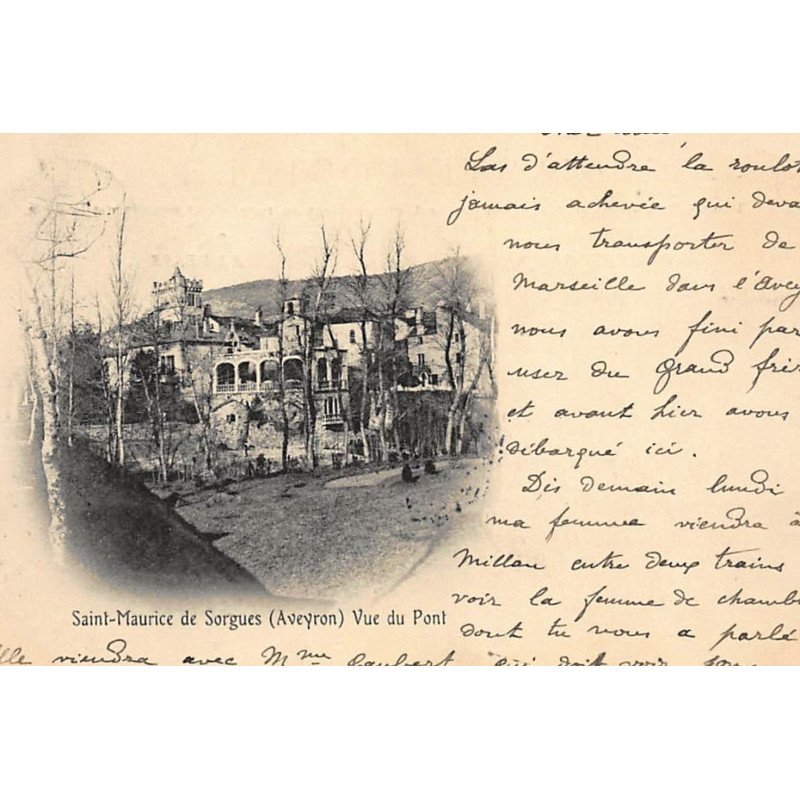 Las d'attendre la roulot
jamais achevée qui deva
nous transporter de
Marseille dans l'Avey
nous avons fini par
user du grand frèr
et avant hier avons
débarqué ici.
Dis demain lundi
ma femme viendra à
Millau entre deux trains
voir la femme de chamb
dont tu nous a parlé
Saint-Maurice de Sorgues (Aveyron) Vue du Pont
lle viendra avec Mme Gaubert qui doit voir